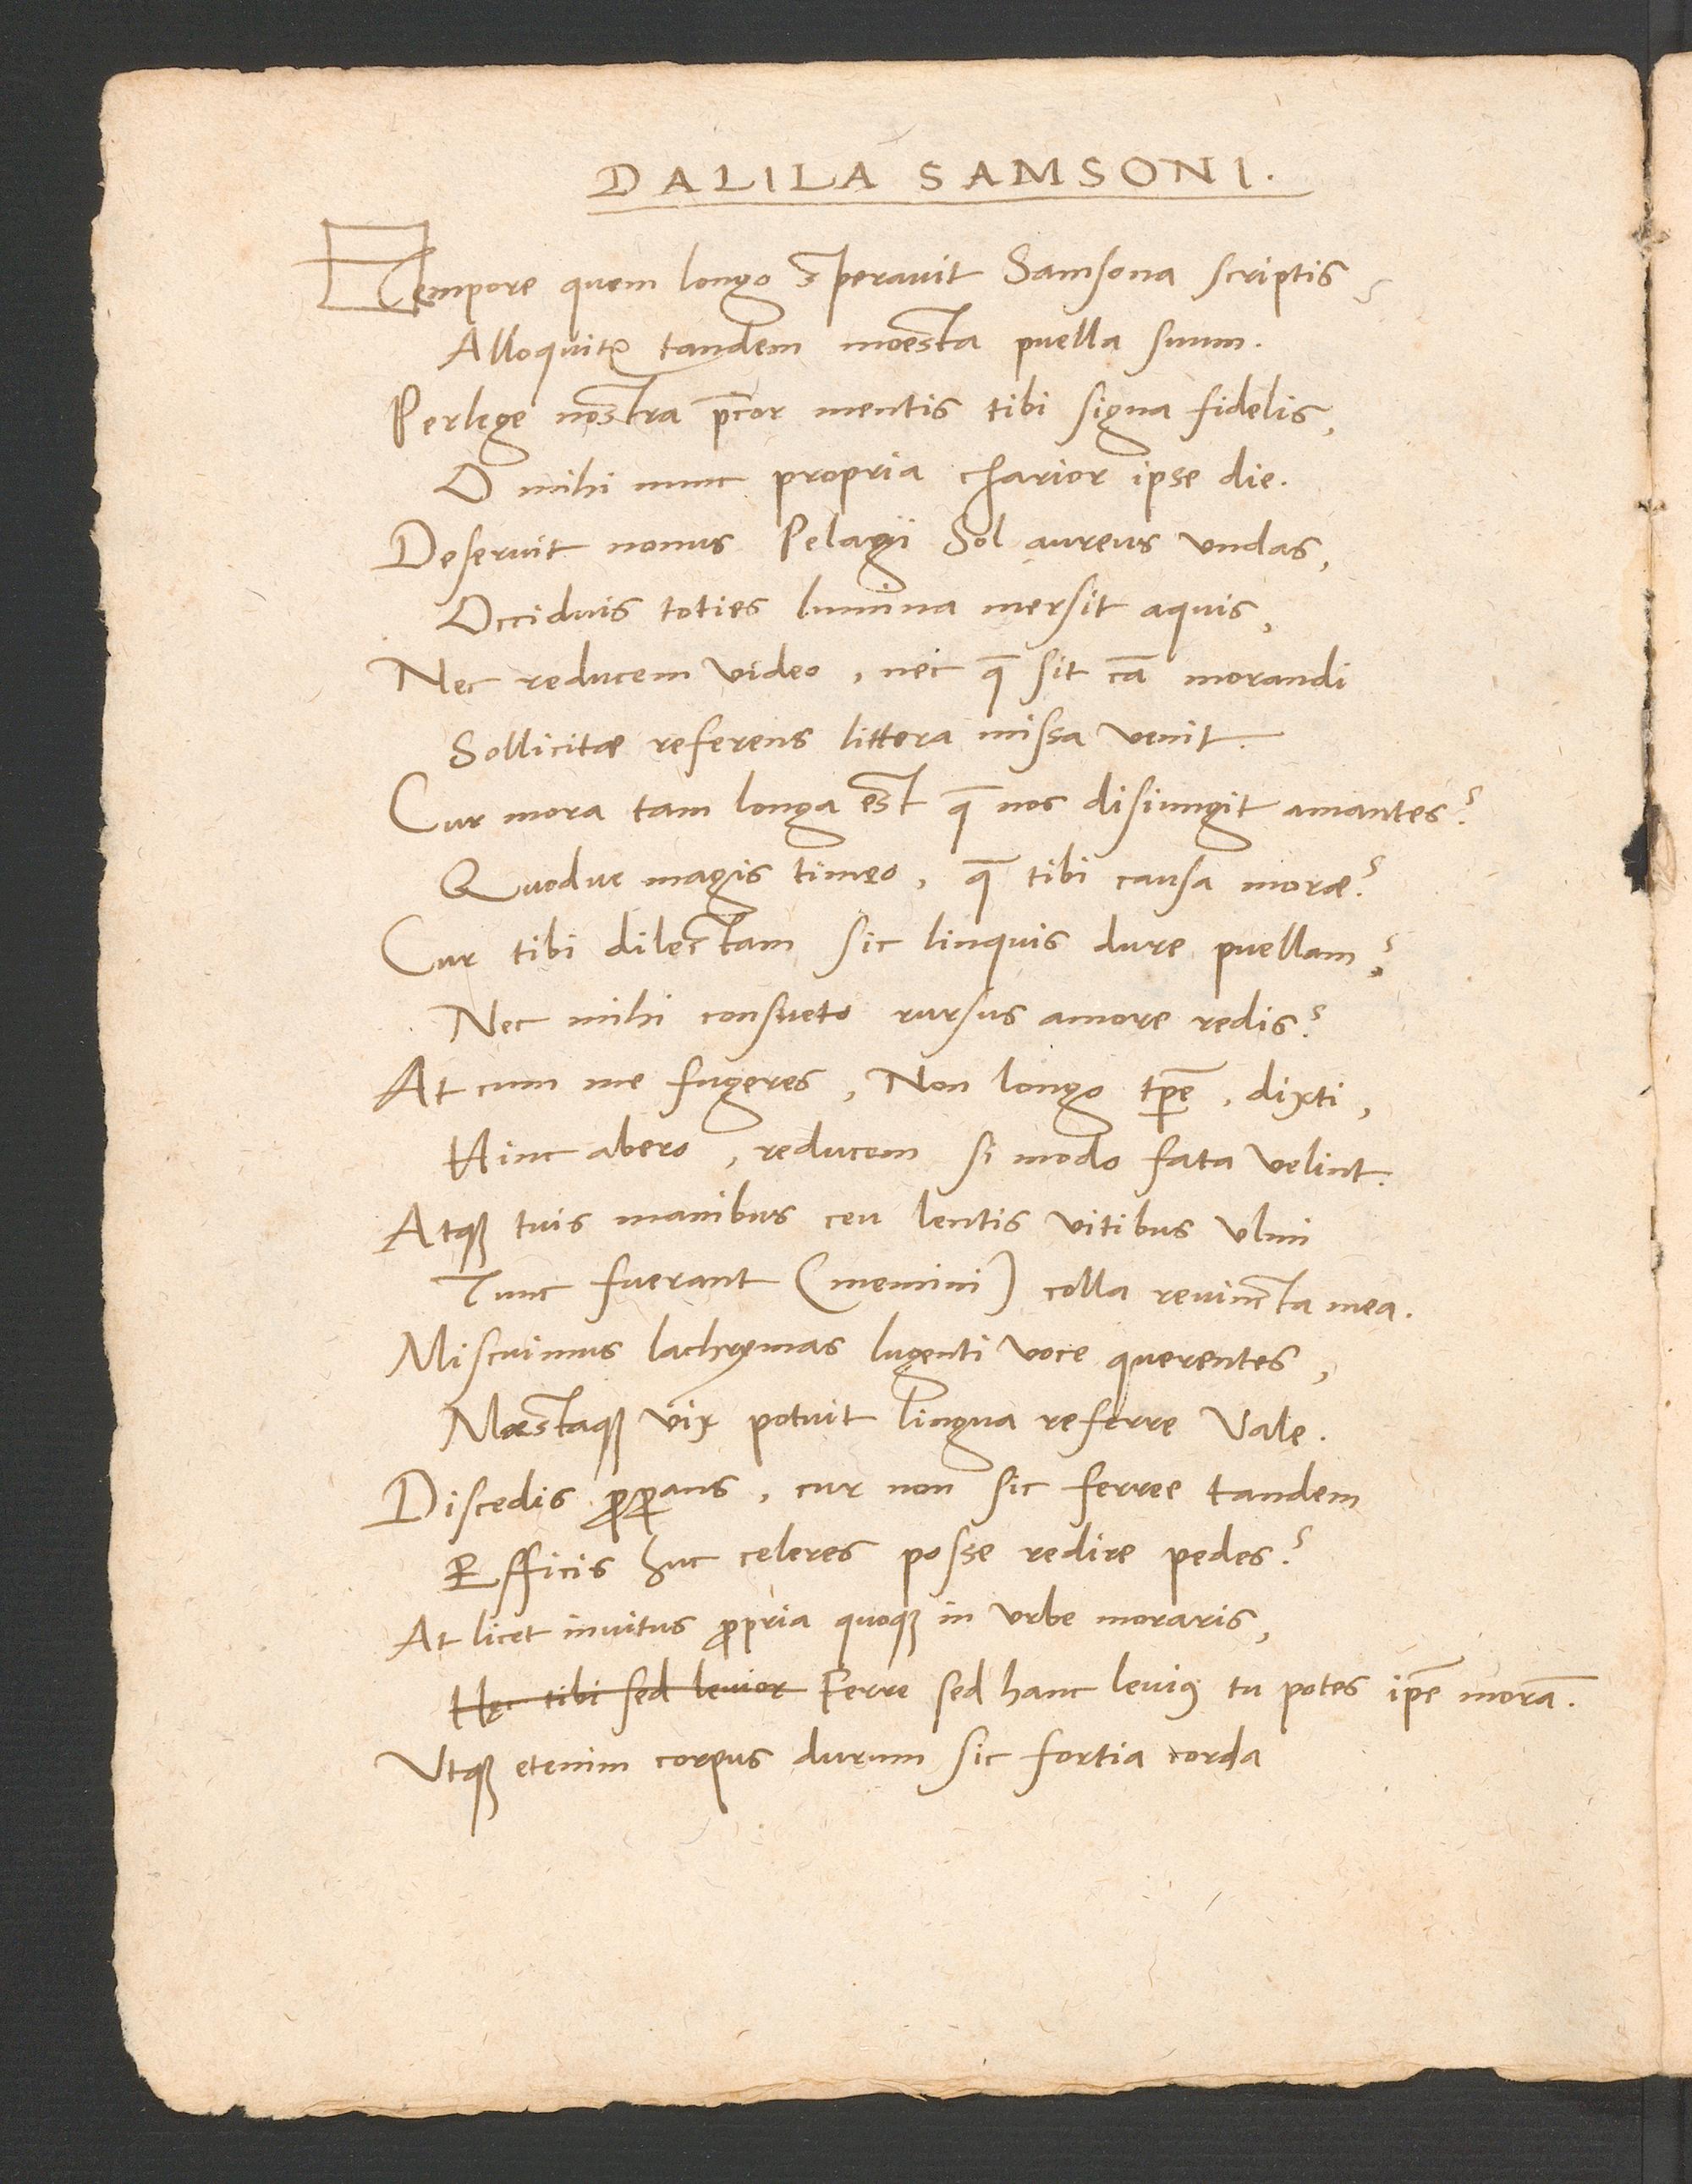 DALILA SAMSONI.
Tempore quem longo sperauit Samsona scriptis
Alloquitꝛ tandem moesta puella suum.
Perlege nostra p̄cor mentis tibi signa fidelis,
O mihi nunc propria charior ipse die.
Deseruit nonus Pelagi Sol aureus vndas,
Occiduis toties lumina mersit aquis,
Nec reducem video, nec q̄ sit cā morandi
Sollicitæ referens littera missa venit.
Cur mora tam longa est q̄ nos disiungit amantes?
Quodue magis timeo, q̄ tibi causa moræ?
Cur tibi dilectam sic linquis dure puellam?
Nec mihi consueto rursus amore redis?
At cum me fugeres, Non longo tp̄e, dixti,
Hinc abero, reducem si modo fata velint.
Atqꝫ tuis manibus ceu lentis vitibus vlmi
Tunc fuerant (memini) colla reuincta mea.
Miscuimus lachrymas lugenti voce querentes,
Mæstaqꝫ vix potuit lingua referre Vale.
Discedis ꝓꝑans, cur non sic ferree tandem
Efficis huc celeres posse redire pedes?
At licet inuitus ꝓpria quoqꝫ in vrbe moraris,
Hęc tibi sed leuior Ferre sed hanc leuiꝰ tu potes ip̄e morā.
Vtqꝫ etenim corpus durum sic fortia corda